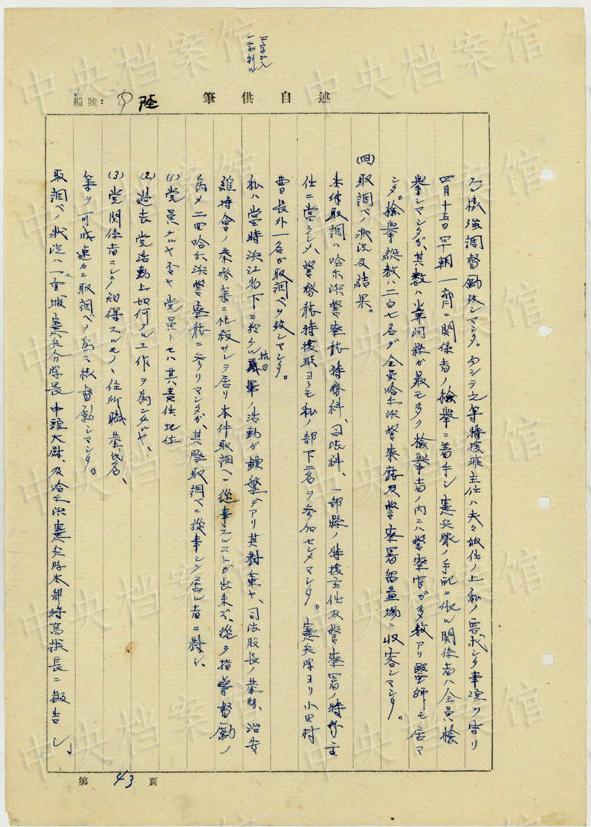 述自供筆
編號:
陸
ル様強調督励致シマシタ。
四月十五日早朝一部ニ関係者ノ検挙ニ着手シ憲兵隊ノ手配ニ依ル関係者ハ全員検
挙シマシタガ、其数ハ
検挙者ノ内ニハ警察官ガ多数アリ醫師モ居マ
シタ。検挙総数ハ二百七名デ全員哈尓浜警察廳及警察署留置場ニ収容シマシタ。
(四)取調べノ状況及結果。
本件取調ハ哈尓浜警察廳特務科、司法科、一部縣ノ特捜主任及警察署ノ特務主
任ニ當ラシメ警務廳特捜班ヨリモ私ノ部下二名ヲ参加セシメマシタ。憲兵隊ヨリ小田村
曹長外一名ガ取調ベヲ致シマシタ。
私ハ當時浜江省下ニ於ケル抗日軍ノ活動ガ頻繁デアリ其対策ヤ、司法股長ノ業務、治安
維持會ノ業務等ニ忙殺サレテ居リ本件取調ベニ從事スルコトガ出来ズ、從ッテ指導督励ノ
為メ二回哈尓浜警察廳ニ参リマシタガ、其際取調ベニ從事シテ居ル者ニ對シ
(1) 党員ナルヤ否ヤ党員トセバ其責任地位
(2) 過去党活動上如何ナル工作ヲ為シタルヤ、
(3) 党関係者ニシテ知得スルモノノ住所職業氏名、
等ヲ可成速カニ取調ベヲ為ス様督励シマシタ。
取調ベノ状況ハ
憲兵分隊長中
大尉、及哈尓浜憲兵隊本部特高課長ニ報告シ
第 43 頁
中央档案馆